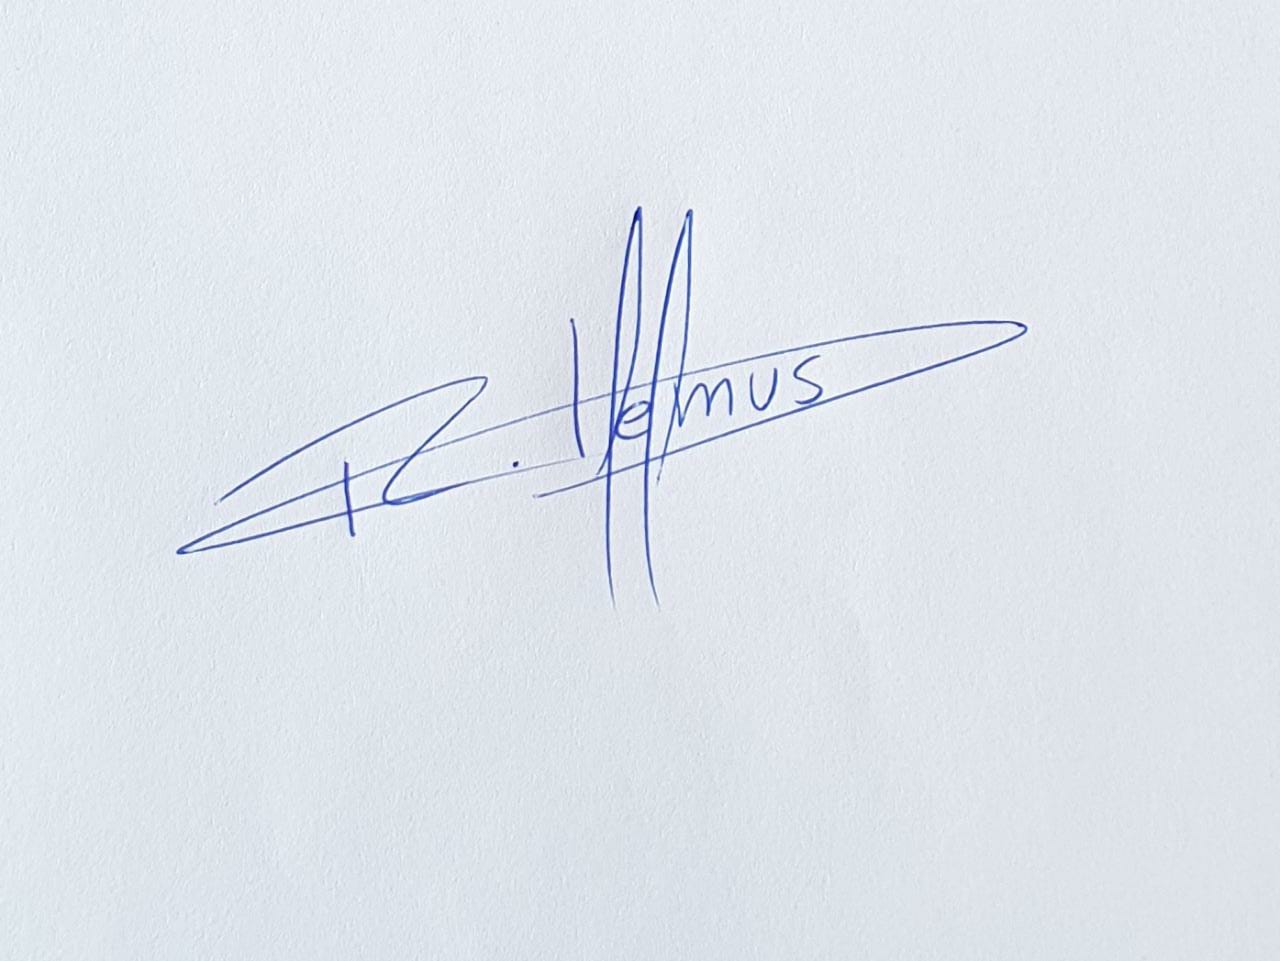 R. Helmus